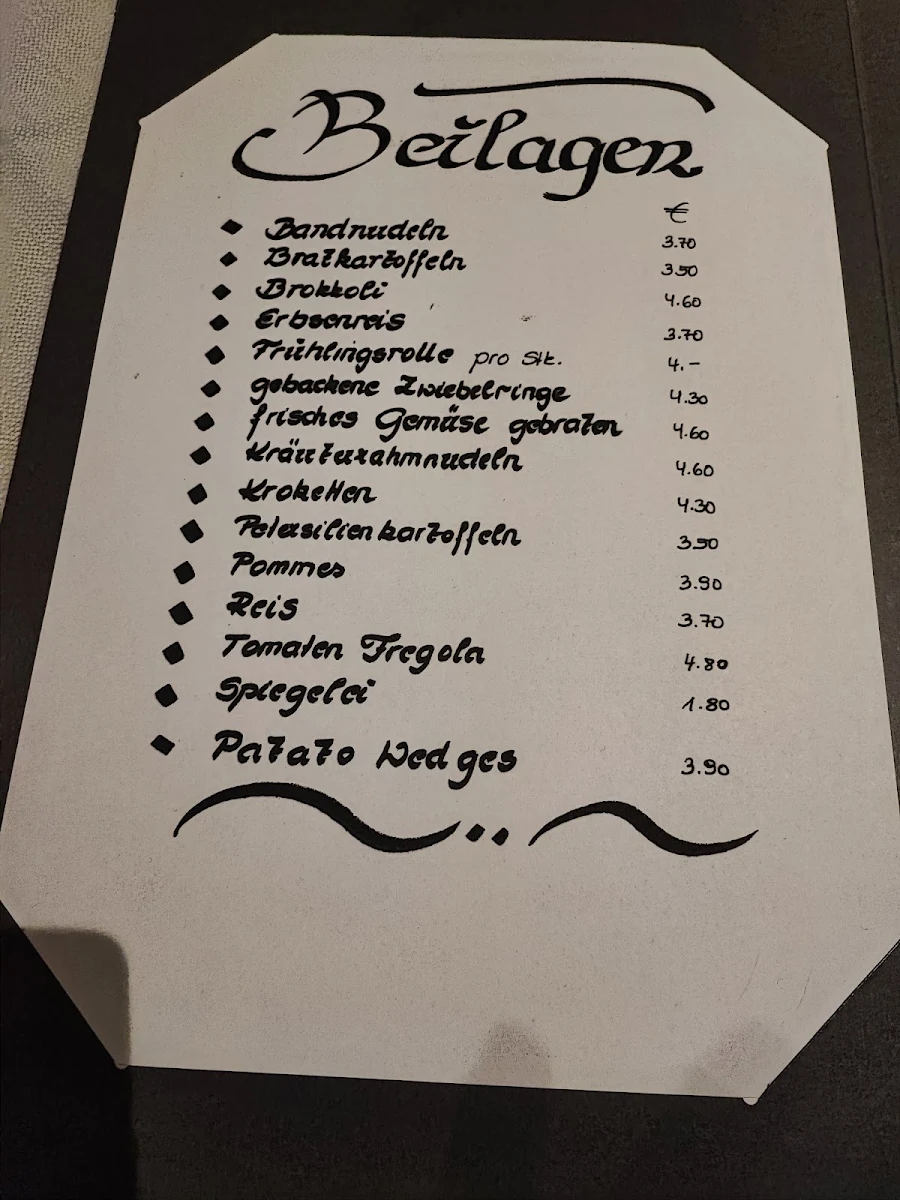 Beilagen
€
Bandnudeln 3.70
Bratkartoffeln 3.50
Brokkoli 4.60
Erbsenreis 3.70
Frühlingsrolle pro Stk. 4.-
gebackene Zwiebelringe 4.30
frisches Gemüse gebraten 4.60
Kräuterrahmnudeln 4.60
Kroketten 4.30
Petersilienkartoffeln 3.50
Pommes 3.90
Reis 3.70
Tomaten Fregola 4.80
Spiegelei 1.80
Patato Wedges 3.90